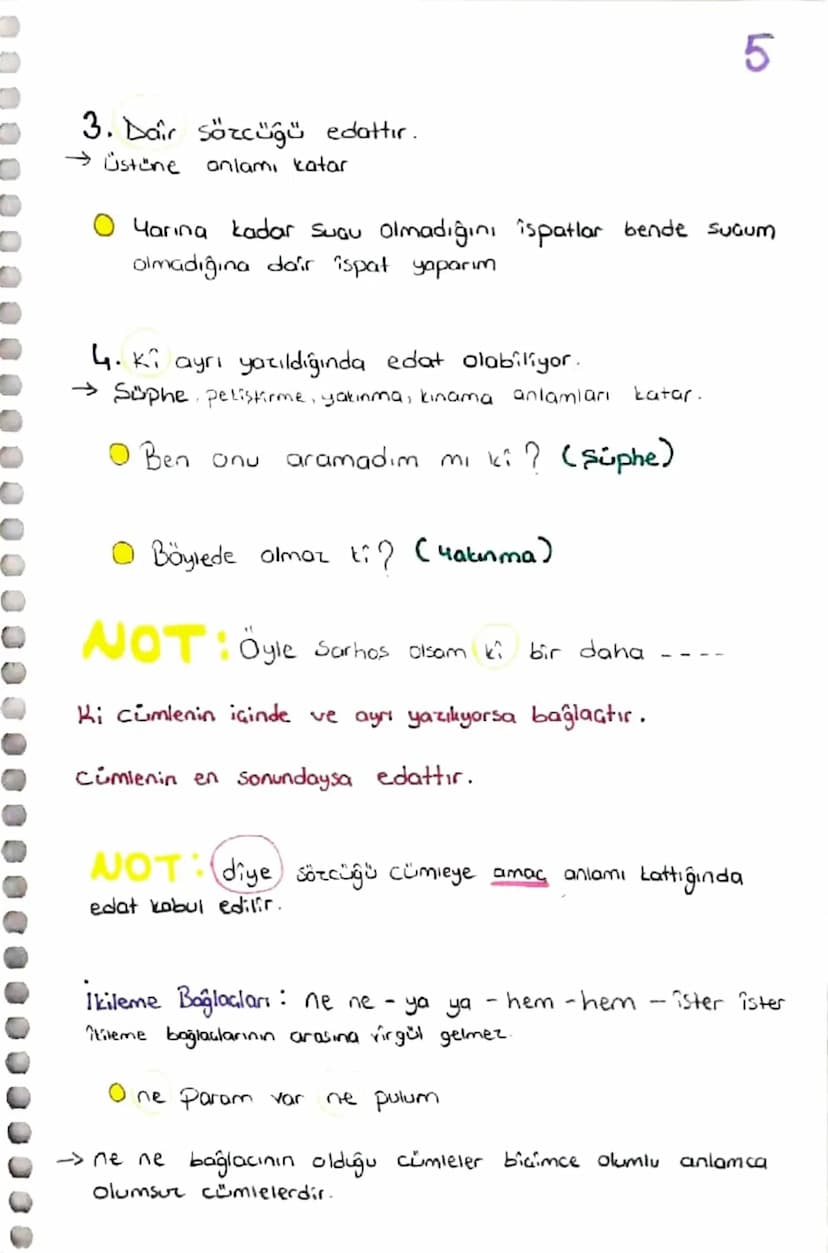 5
3. Dair sözcüğü edattır.
→ Üstüne anlamı katar
Yarına kadar suçu olmadığını ispatlar bende suçum
olmadığına dair ispat yaparım
4. Ki ayrı yazıldığında edat olabiliyor.
→ Şüphe, pekiştirme, yakınma, kınama anlamları katar.
Ben onu aramadım mı ki? (Şüphe)
Böylede olmaz ki? (Yakınma)
NOT: Öyle sarhoş olsam ki bir daha ----
Ki cümlenin içinde ve ayrı yazılıyorsa bağlaçtır.
Cümlenin en sonundaysa edattır.
NOT: diye sözcüğü cümleye amaç anlamı kattığında
edat kabul edilir.
İkileme Bağlaçları: ne ne - ya ya - hem - hem - ister ister
İkileme bağlaçlarının arasına virgül gelmez.
ne param var ne pulum
→ ne ne bağlacının olduğu cümleler biçimce olumlu anlamca
olumsuz cümlelerdir.